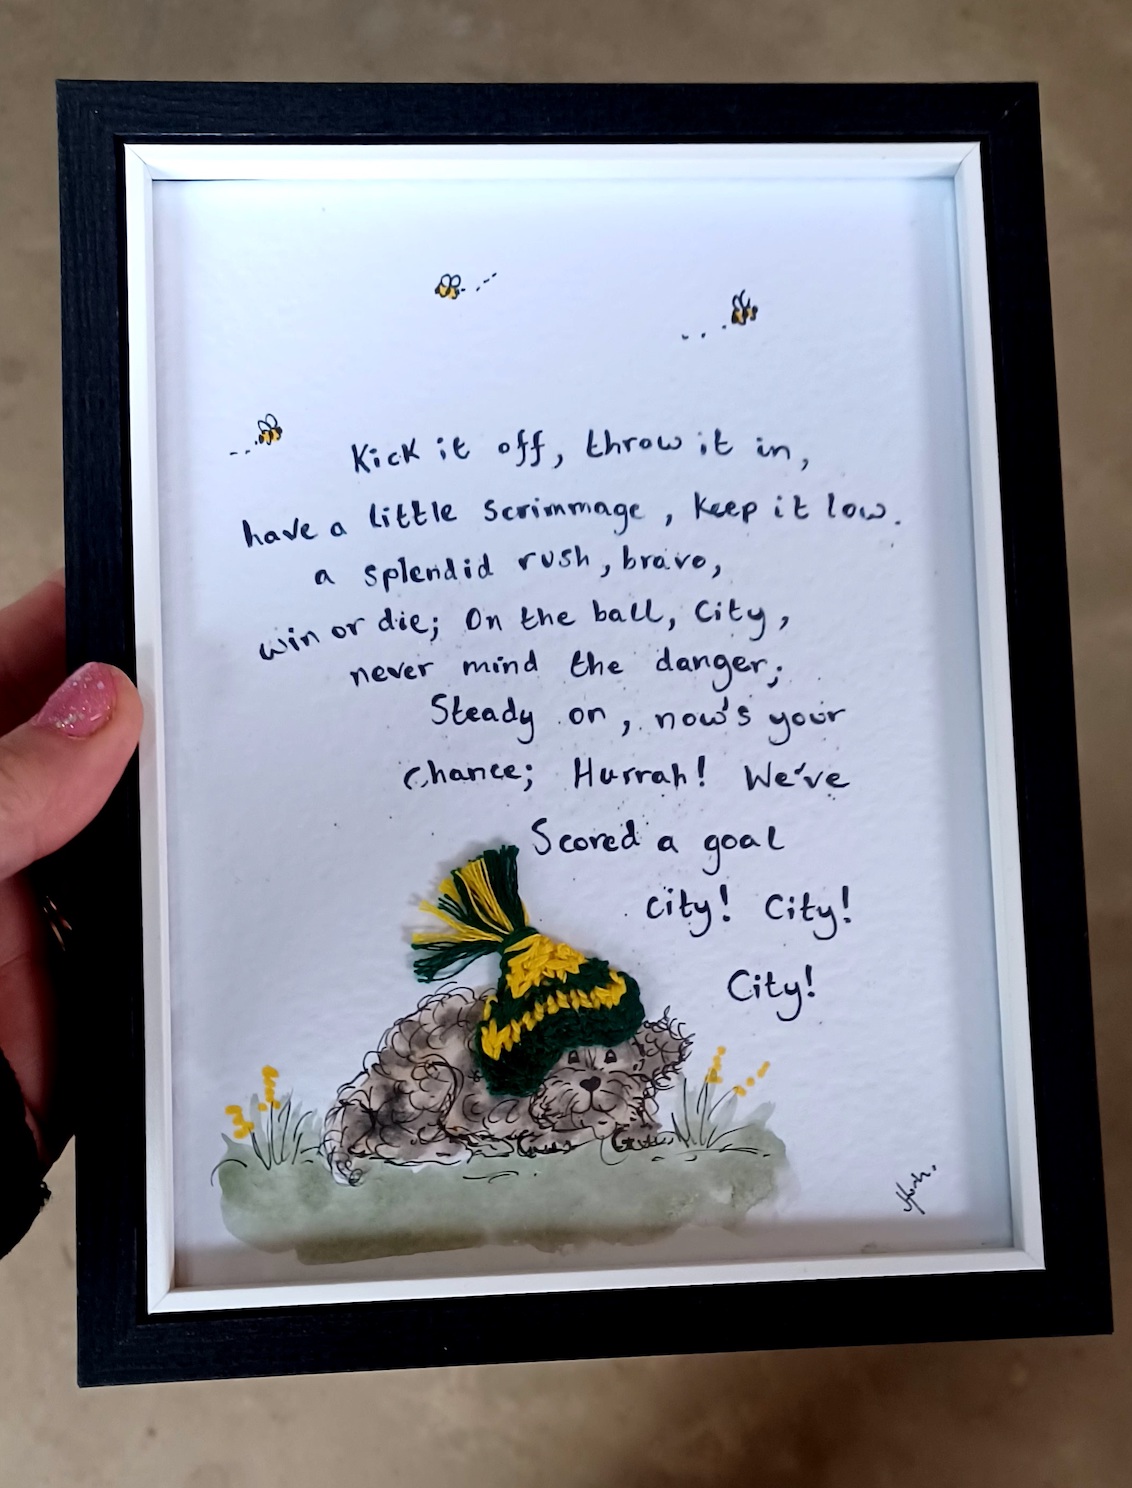 Kick it off, throw it in,
have a little scrimmage, keep it low.
a splendid rush, bravo,
win or die; On the ball, City,
never mind the danger;
Steady on, now's your
chance; Hurrah! We've
Scored a goal
city! City!
City!